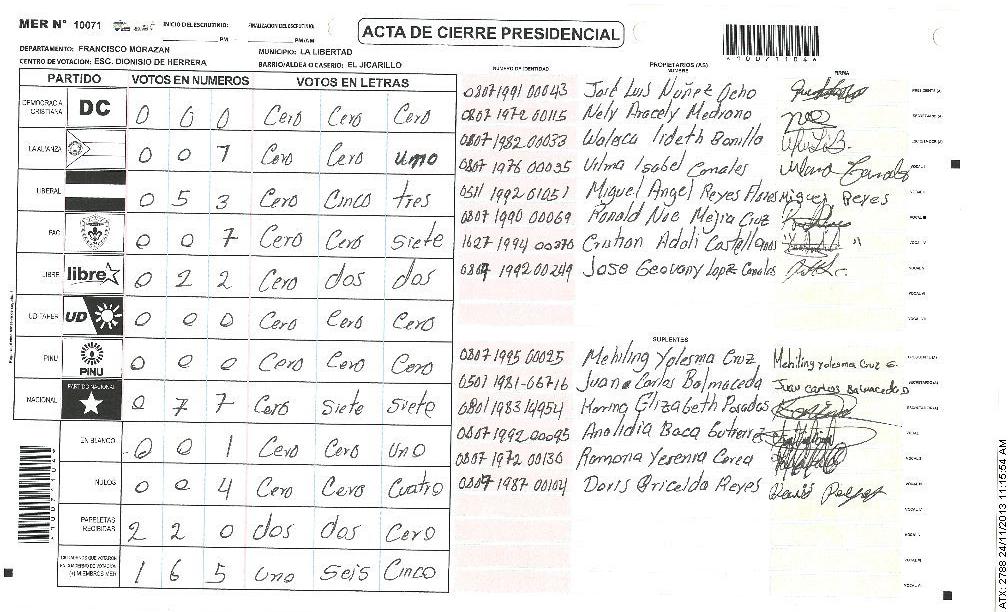 MER N° 10071 INICIO DEL ESCRUTINIO: PM FINALIZACION DEL ESCRUTINIO: PM/AM
ACTA DE CIERRE PRESIDENCIAL
DEPARTAMENTO: FRANCISCO MORAZAN MUNICIPIO: LA LIBERTAD
CENTRO DE VOTACION: ESC. DIONISIO DE HERRERA BARRIO/ALDEA O CASERIO: EL JICARILLO
PARTIDO VOTOS EN NUMEROS VOTOS EN LETRAS
DEMOCRACIA CRISTIANA DC 0 0 0 Cero Cero Cero
LA ALIANZA 0 0 1 Cero Cero uno
LIBERAL 0 5 3 Cero Cinco tres
PAC 0 0 7 Cero Cero siete
LIBRE libre 0 2 2 Cero dos dos
UD-FAPER UD 0 0 0 Cero Cero Cero
PINU PINU 0 0 0 Cero Cero Cero
NACIONAL PARTIDO NACIONAL 0 7 7 Cero Siete Siete
EN BLANCO 0 0 1 Cero Cero Uno
NULOS 0 0 4 Cero Cero Cuatro
PAPELETAS RECIBIDAS 2 2 0 dos dos Cero
CIUDADANOS QUE VOTARON EN CUADERNO DE VOTACION (+) MIEMBROS MER 1 6 5 Uno Seis Cinco
NUMERO DE IDENTIDAD PROPIETARIOS (AS) NOMBRE FIRMA
0807 1991 00043 José Luis Nuñez Ocho PRESIDENTE (A)
0807 1972 00115 Nely Aracely Medrano SECRETARIO (A)
0807 1982 00033 Lideth Bonilla ESCRUTADOR (A)
0807 1976 00035 Vilma Isabel Canales VOCAL I
0511 1992 01051 Miguel Angel Reyes Flores Miguel Reyes VOCAL II
0807 1990 00069 Ronald Noe Mejia Cruz VOCAL III
1627 1994 00370 Adoli Castellanos VOCAL IV
0807 1992 00249 Jose Geovany Lopez Canales VOCAL V
VOCAL VI
VOCAL VII
SUPLENTES
0807 1995 00025 Mehiling Yolesma Cruz Mehiling yolesma Cruz PRESIDENTE (A)
0501 1981-06716 Juan Carlos Balmaceda Juan Carlos Balmaceda D SECRETARIO (A)
0801 1983 14954 Karina Elizabeth Posadas ESCRUTADOR (A)
0807 1992 00095 Analidia Baca Gutierrez VOCAL I
0807 1972 00130 Ramona Yesenia Cerea VOCAL II
0807 1987 00104 Doris Griselda Reyes VOCAL III
VOCAL IV
VOCAL V
VOCAL VI
VOCAL VII
ATX: 2788 24/11/2013 11:15:54 AM